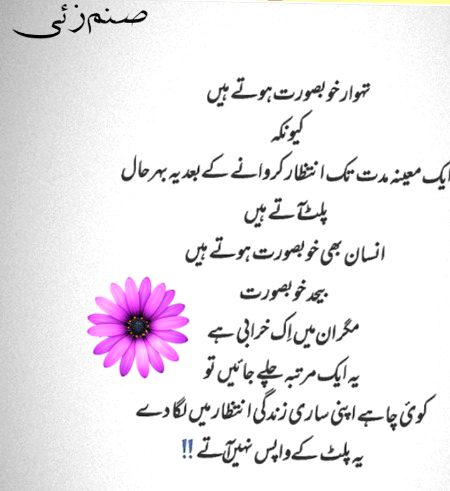 صنم زئی
تہوار خوبصورت ہوتے ہیں
کیونکہ
ایک معینہ مدت تک انتظار کروانے کے بعد یہ بہر حال
پلٹ آتے ہیں
انسان بھی خوبصورت ہوتے ہیں
بیحد خوبصورت
مگر ان میں اِک خرابی ہے
یہ ایک مرتبہ چلے جائیں تو
کوئ چاہے اپنی ساری زندگی انتظار میں لگا دے
یہ پلٹ کے واپس نہیں آتے !!